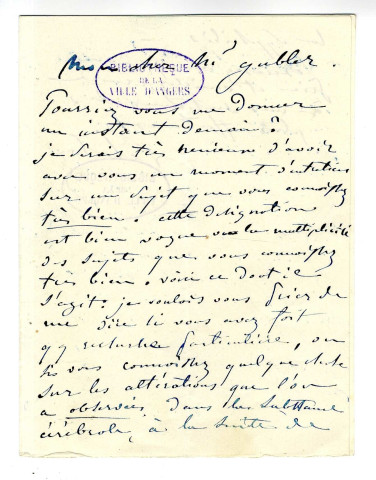 Mon cher Mr Gubler.
BIBLIOTHÈQUE
DE LA
VILLE D'ANGERS
Pourriez vous me donner
un instant demain?
je serais très heureuse d'avoir
avec vous un moment d'entretien
sur un sujet que vous connoissez
très bien. cette designation
est bien vague vu la multiplicité
des sujets que vous connoissez
très bien. voici ce dont il
s'agit: je voulois vous prier de
me dire si vous avez fait
qq recherche particulière, ou
si vous connoissez quelque chose
sur les altérations que l'on
a observées dans les substance
cérébrale, à la suite de